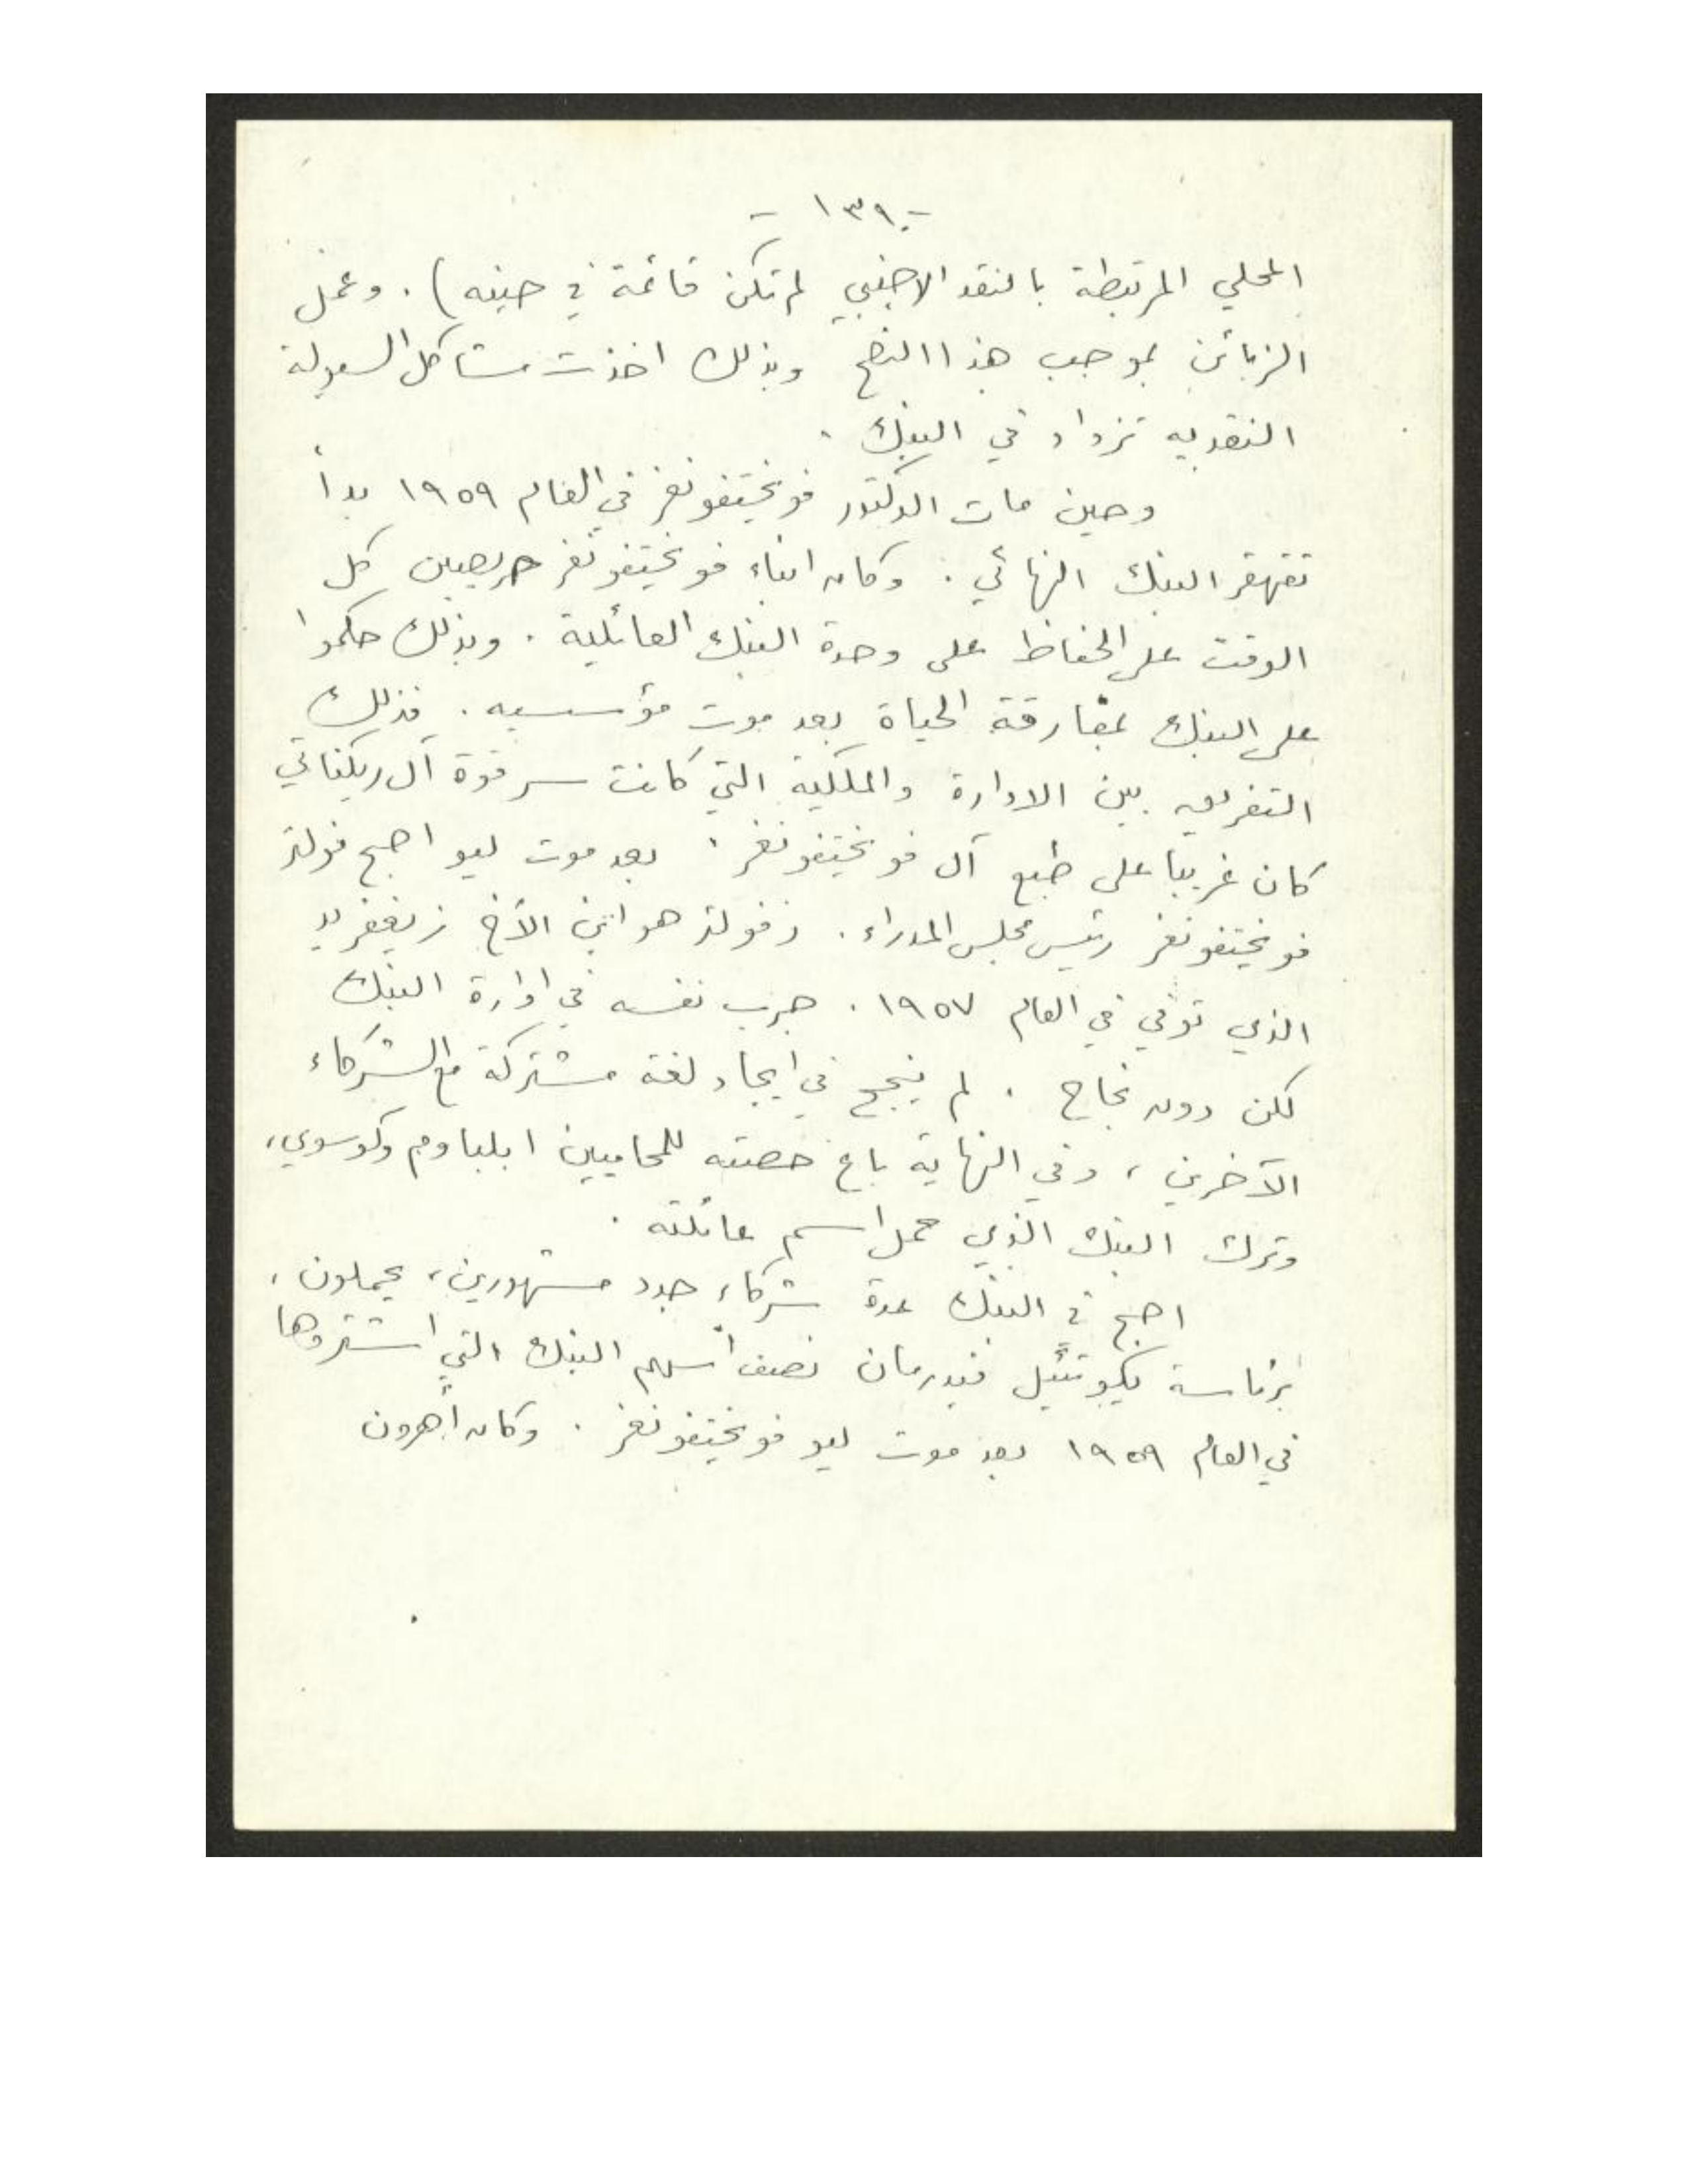 - ١٣٩ -
المحلي المرتبطة بالنقد الاجنبي لم تكن قائمة في حينه ) . وعمل
الزبائن بموجب هذا النهج وبذلك اخذت مشاكل السيولة
النقديه تزداد في البنك .
وحين مات الدكتور فويختفونغر في العام ١٩٥٩ بدأ
تقهقر البنك النهائي . وكان ابناء فويختفونغر حريصين كل
الوقت على الحفاظ على وحدة البنك العائلية . وبذلك حكموا
على البنك بمفارقة الحياة بعد موت مؤسسيه . فذلك
التفريق بين الادارة والملكية التي كانت سر قوة آل ريكناتي
كان غريبا على طبع آل فويختفونغر . بعد موت ليو اصبح فولتر
فويختفونغر رئيس مجلس المدراء . وفولتر هو ابن الأخ زيغفريد
الذي توفي في العام ١٩٥٧ . جرب نفسه في ادارة البنك
لكن دون نجاح . لم ينجح في ايجاد لغة مشتركة مع الشركاء
الآخرين ، وفي النهاية باع حصته للمحاميين ابلباوم وكوسوي ،
وترك البنك الذي حمل اسم عائلته .
اصبح في البنك عدة شركاء جدد مشهورين ، يحملون ،
برئاسة يكوتئيل فيدرمان نصف أسهم البنك التي اشتروها
في العام ١٩٥٩ بعد موت ليو فويختفونغر . وكان أهرون